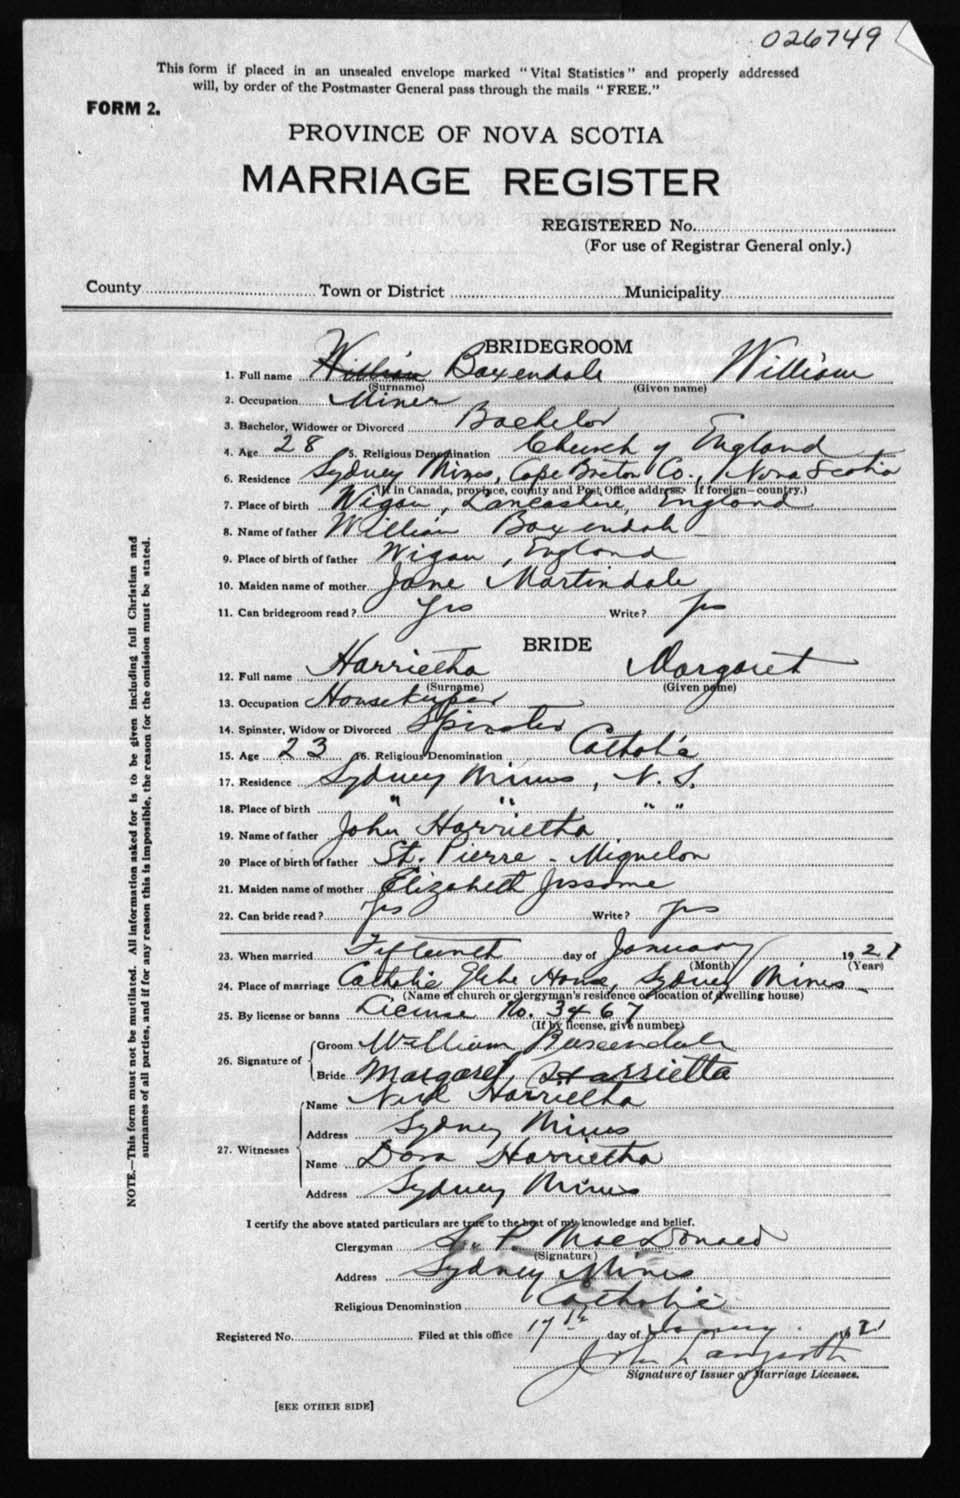 026749
This form if placed in an unsealed envelope marked "Vital Statistics" and properly addressed
will, by order of the Postmaster General pass through the mails "FREE."
FORM 2.
PROVINCE OF NOVA SCOTIA
MARRIAGE REGISTER
REGISTERED No.
(For use of Registrar General only.)
County Town or District Municipality
BRIDEGROOM
1. Full name William Baxendale William
(Surname) (Given name)
2. Occupation Miner
3. Bachelor, Widower or Divorced Bachelor
4. Age 28 5. Religious Denomination Church of England
6. Residence Sydney Mines, Cape Breton Co., Nova Scotia
(If in Canada, province, county and Post Office address. If foreign—country.)
7. Place of birth Wigan, Lancashire, England
8. Name of father William Baxendale
9. Place of birth of father Wigan, England
10. Maiden name of mother Jane Martindale
11. Can bridegroom read? Yes Write? Yes
BRIDE
12. Full name Harrietha Margaret
(Surname) (Given name)
13. Occupation Housekeeper
14. Spinster, Widow or Divorced Spinster
15. Age 23 16. Religious Denomination Catholic
17. Residence Sydney Mines, N. S.
18. Place of birth " " " "
19. Name of father John Harrietha
20 Place of birth of father St. Pierre - Miquelon
21. Maiden name of mother Elizabeth Jessome
22. Can bride read? Yes Write? Yes
23. When married Fifteenth day of January 1921
(Month) (Year)
24. Place of marriage Catholic Glebe House, Sydney Mines
(Name of church or clergyman's residence or location of dwelling house)
25. By license or banns License No. 3467
(If by license, give number)
26. Signature of Groom William Baxendale
Bride Margaret Harrietta
27. Witnesses Name Neil Harrietha
Address Sydney Mines
Name Dora Harrietha
Address Sydney Mines
I certify the above stated particulars are true to the best of my knowledge and belief.
Clergyman P. MacDonald
(Signature)
Address Sydney Mines
Religious Denomination Catholic
Registered No. Filed at this office 17th day of January 1921
John Langworth
Signature of Issuer of Marriage Licenses.
[SEE OTHER SIDE]
NOTE.—This form must not be mutilated. All information asked for is to be given including full Christian and
surnames of all parties, and if for any reason this is impossible, the reason for the omission must be stated.